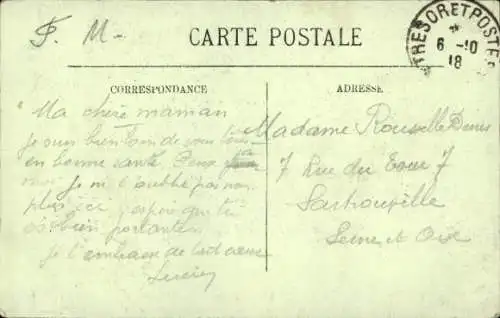 F. M-
CARTE POSTALE
TRESOR ET POSTES
6 -10
18
CORRESPONDANCE
ADRESSE
Ma chère maman
je suis bien loin de vous tous
en bonne santé
moi je ne t'oublie pas non
plus ici j'espère que tu
es bien portante
je t'embrasse de tout coeur
Lucien
Madame Rouselle Denis
7 Rue du Four 7
Sartrouville
Seine et Oise